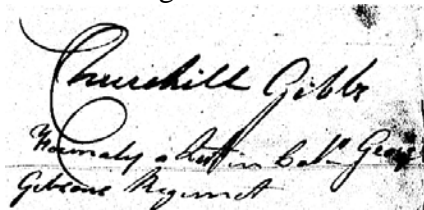 Churchill Gibbs
Formerly a Lieut in Col.ⁿ George
Gibsons Regiment